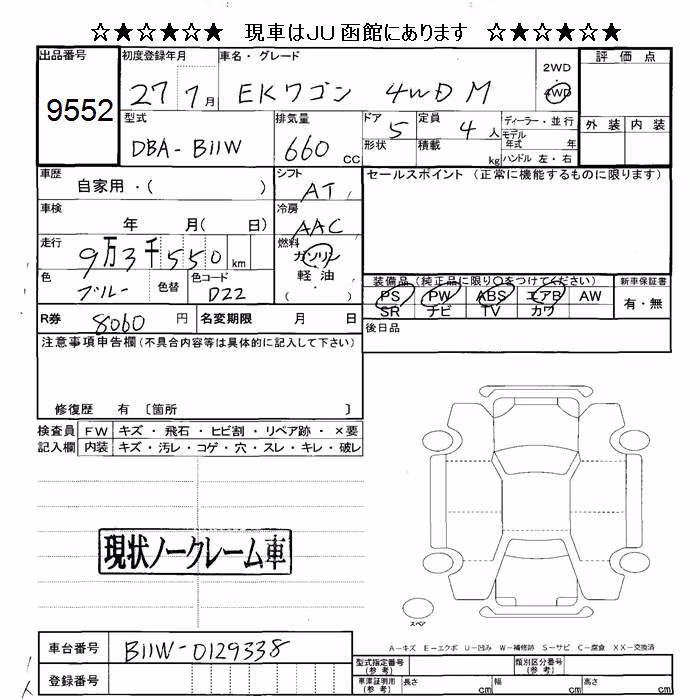 ☆★☆★☆★ 現車はJU函館にあります ☆★☆★☆★
出品番号 初度登録年月 車名・グレード 2WD 評価点
9552 27 7月 EKワゴン 4WD M 4WD
型式 排気量 ドア 定員 ディーラー・並行 外装 内装
DBA-B11W 660 CC 5 4人 モデル年式 年
形状 積載 kg ハンドル 左・右
車歴 自家用・( ) シフト AT セールスポイント (正常に機能するものに限ります)
車検 年 月( 日) 冷房 AAC
走行 9万3千550km 燃料 ガソリン
色 ブルー 色替 色コード D22 軽油 ( )
装備品(純正品に限り○をつけてください) 新車保証書
PS PW ABS エアB AW 有・無
SR ナビ TV カワ
R券 8060円 名変期限 月 日 後日品
注意事項申告欄(不具合内容等は具体的に記入して下さい)
修復歴 有 〔箇所 〕
検査員 FW キズ・飛石・ヒビ割・リペア跡・×要
記入欄 内装 キズ・汚レ・コゲ・穴・スレ・キレ・破レ
現状ノークレーム車
スペア
A-キズ E-エクボ U-凹み W-補修跡 S-サビ C-腐食 XX-交換済
車台番号 B11W-0129338 型式指定番号(参考) 類別区分番号(参考)
登録番号 車庫証明用(参考) 長さ cm 幅 cm 高さ cm